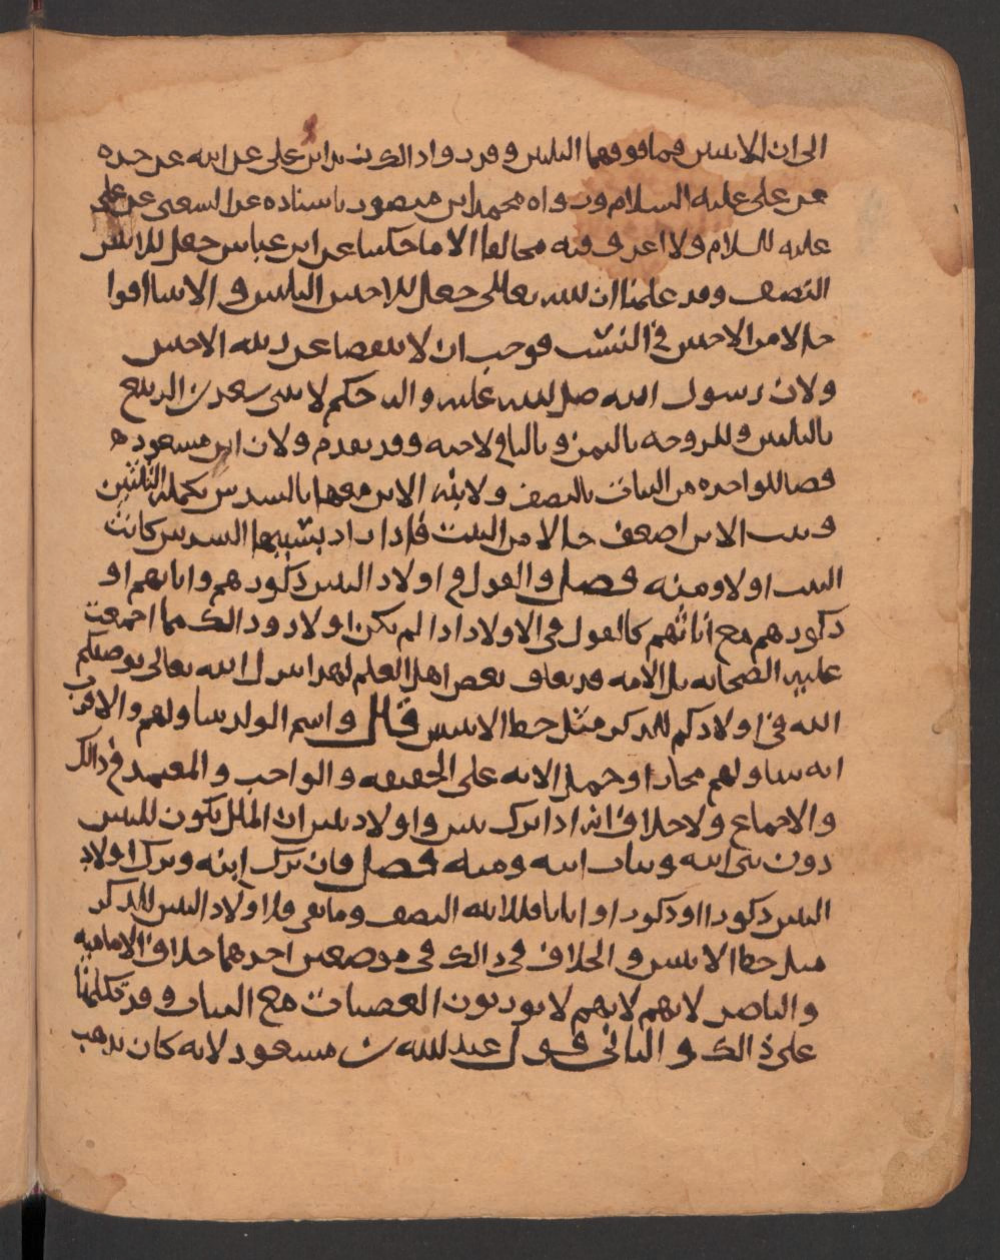 الى ان للابنتين فما فوقهما الثلثين وقد روا ذالك زيد ابن على عن ابيه عن جده
عن على عليه السلام ورواه محمد ابن منصور باسناده عن الشعبى عن على
عليه السلام ولا اعرف فيه مخالفا الا ما حكينا عن ابن عباس جعل للابنتين
النصف وقد علمنا ان الله تعالى جعل للاختين الثلثين والابنتا اقوا
حالا من الاختين في النسب فوجب ان لا ينقصا عن رتبه الاختين
ولان رسول الله صلى الله عليه واله حكم لابنتى سعد بن الربيع
بالثلثين وللزوجه بالثمن وبالباقى لاخيه وقد تقدم ولان ابن مسعود
قضا للواحده من البنات بالنصف ولابنه الابن معها بالسدس تكملة الثلثين
وبنت الابن اضعف حالا من البنت فاذا بنتيها السدس كانت
البنت اولا ومنه فصل والقول في اولاد البنين ذكورهم واناثهم او
ذكورهم مع اناثهم كالقول في الاولاد اذا لم يكن اولاد وذالك مما اجمعت
عليه الصحابه بل الامه قد بعض اهل العلم لهذا قول الله تعالى يوصيكم
الله في اولادكم للذكر مثل حظ الانثيين قال واسم الولد يتناولهم والاقرب
انه يتناولهم مجازا وحمل الايه على الحقيقه والواجب والمعتمد في ذالك
والاجماع ولا خلاف انه اذا ترك بنين واولاد بنين ان المال يكون للبنين
دون بنى ابنه وبنات ابنه ومنه فصل فان ترك ابنه وترك اولاد
البنين ذكورا او ذكورا واناثا فللابنه النصف وما بقى فلاولاد البنين للذكر
مثل حظ الانثيين والخلاف في ذالك في موضعين احدهما خلاف الاماميه
والناصر لانهم لا يورثون العصبات مع البنات وقد تكلمنا
على ذالك والثانى قول عبد الله بن مسعود لانه كان يذهب